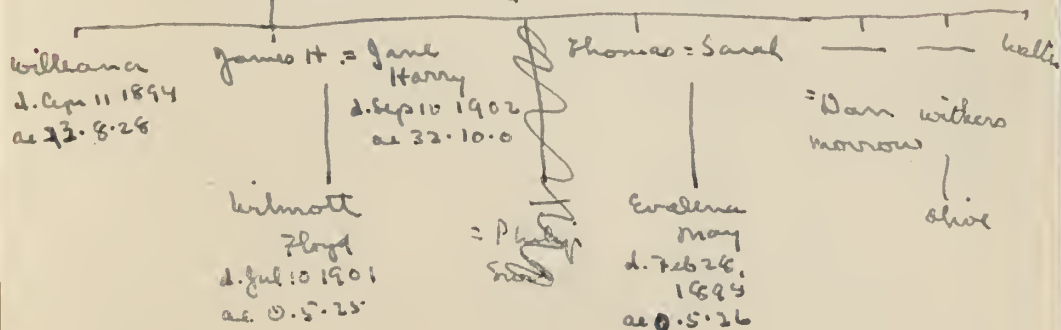 Willeana
d. Apr 11 1894
ae 23.8.28
James H. = Jane
Harry
d. Sep 10 1902
ae 32.10.0
Wilmott
Floyd
d. Jul 10 1901
ae 0.5.25
Thomas = Sarah
Evalena
May
d. Feb 28,
ae 0.5.26
= Dan withers
morrow
olive